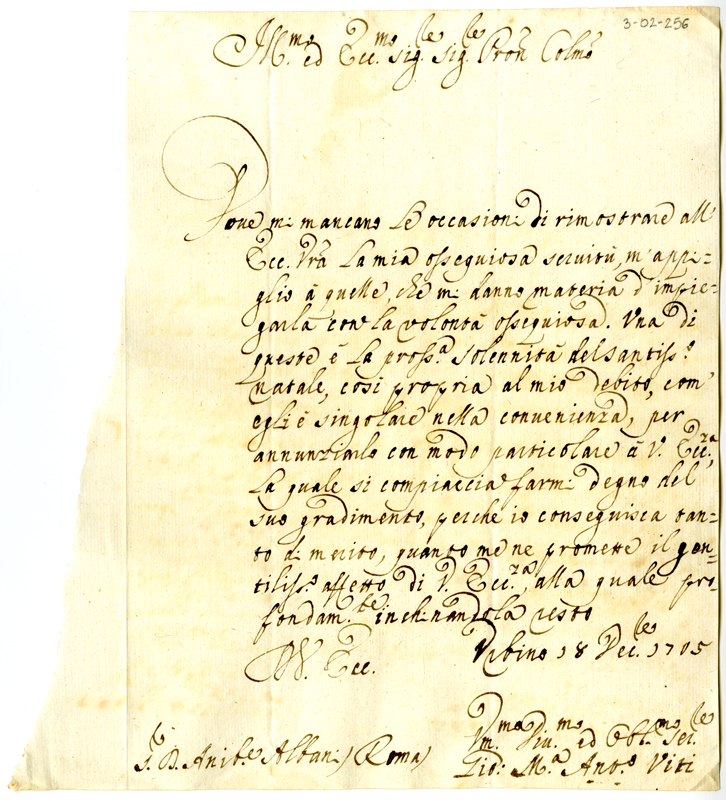 3-02-256
Ill.mo ed Ecc.mo Sig.le Sig.le Pron Colmo
Doue mi mancano le occasioni di rimostrare all'
Ecc. Vra la mia ossequiosa seruitù, m'appi=
glio à quelle, che mi danno materia d'impie=
garla con la volontà ossequiosa. Vna di
queste è la pross.a solennità del santiss.o
Natale, così propria al mio debito, com'
egli è singolare nella conuenienza, per
annunziarlo con modo particolare à V. Ecc.za,
la quale si compiaccia farmi degno del
suo gradimento, perche io conseguisca tan=
to di merito, quanto me ne promette il gen=
tiliss.o affetto di V. Ecc.za, alla quale pro=
fondam.te inchinandola resto
Vrbino 18 Dec.le 1705
V. Ecc.
S. D. Anib.e Albani (Roma)
Vm.mo Diu.mo ed Obl.mo Ser.le
M.a Ant.o Viti